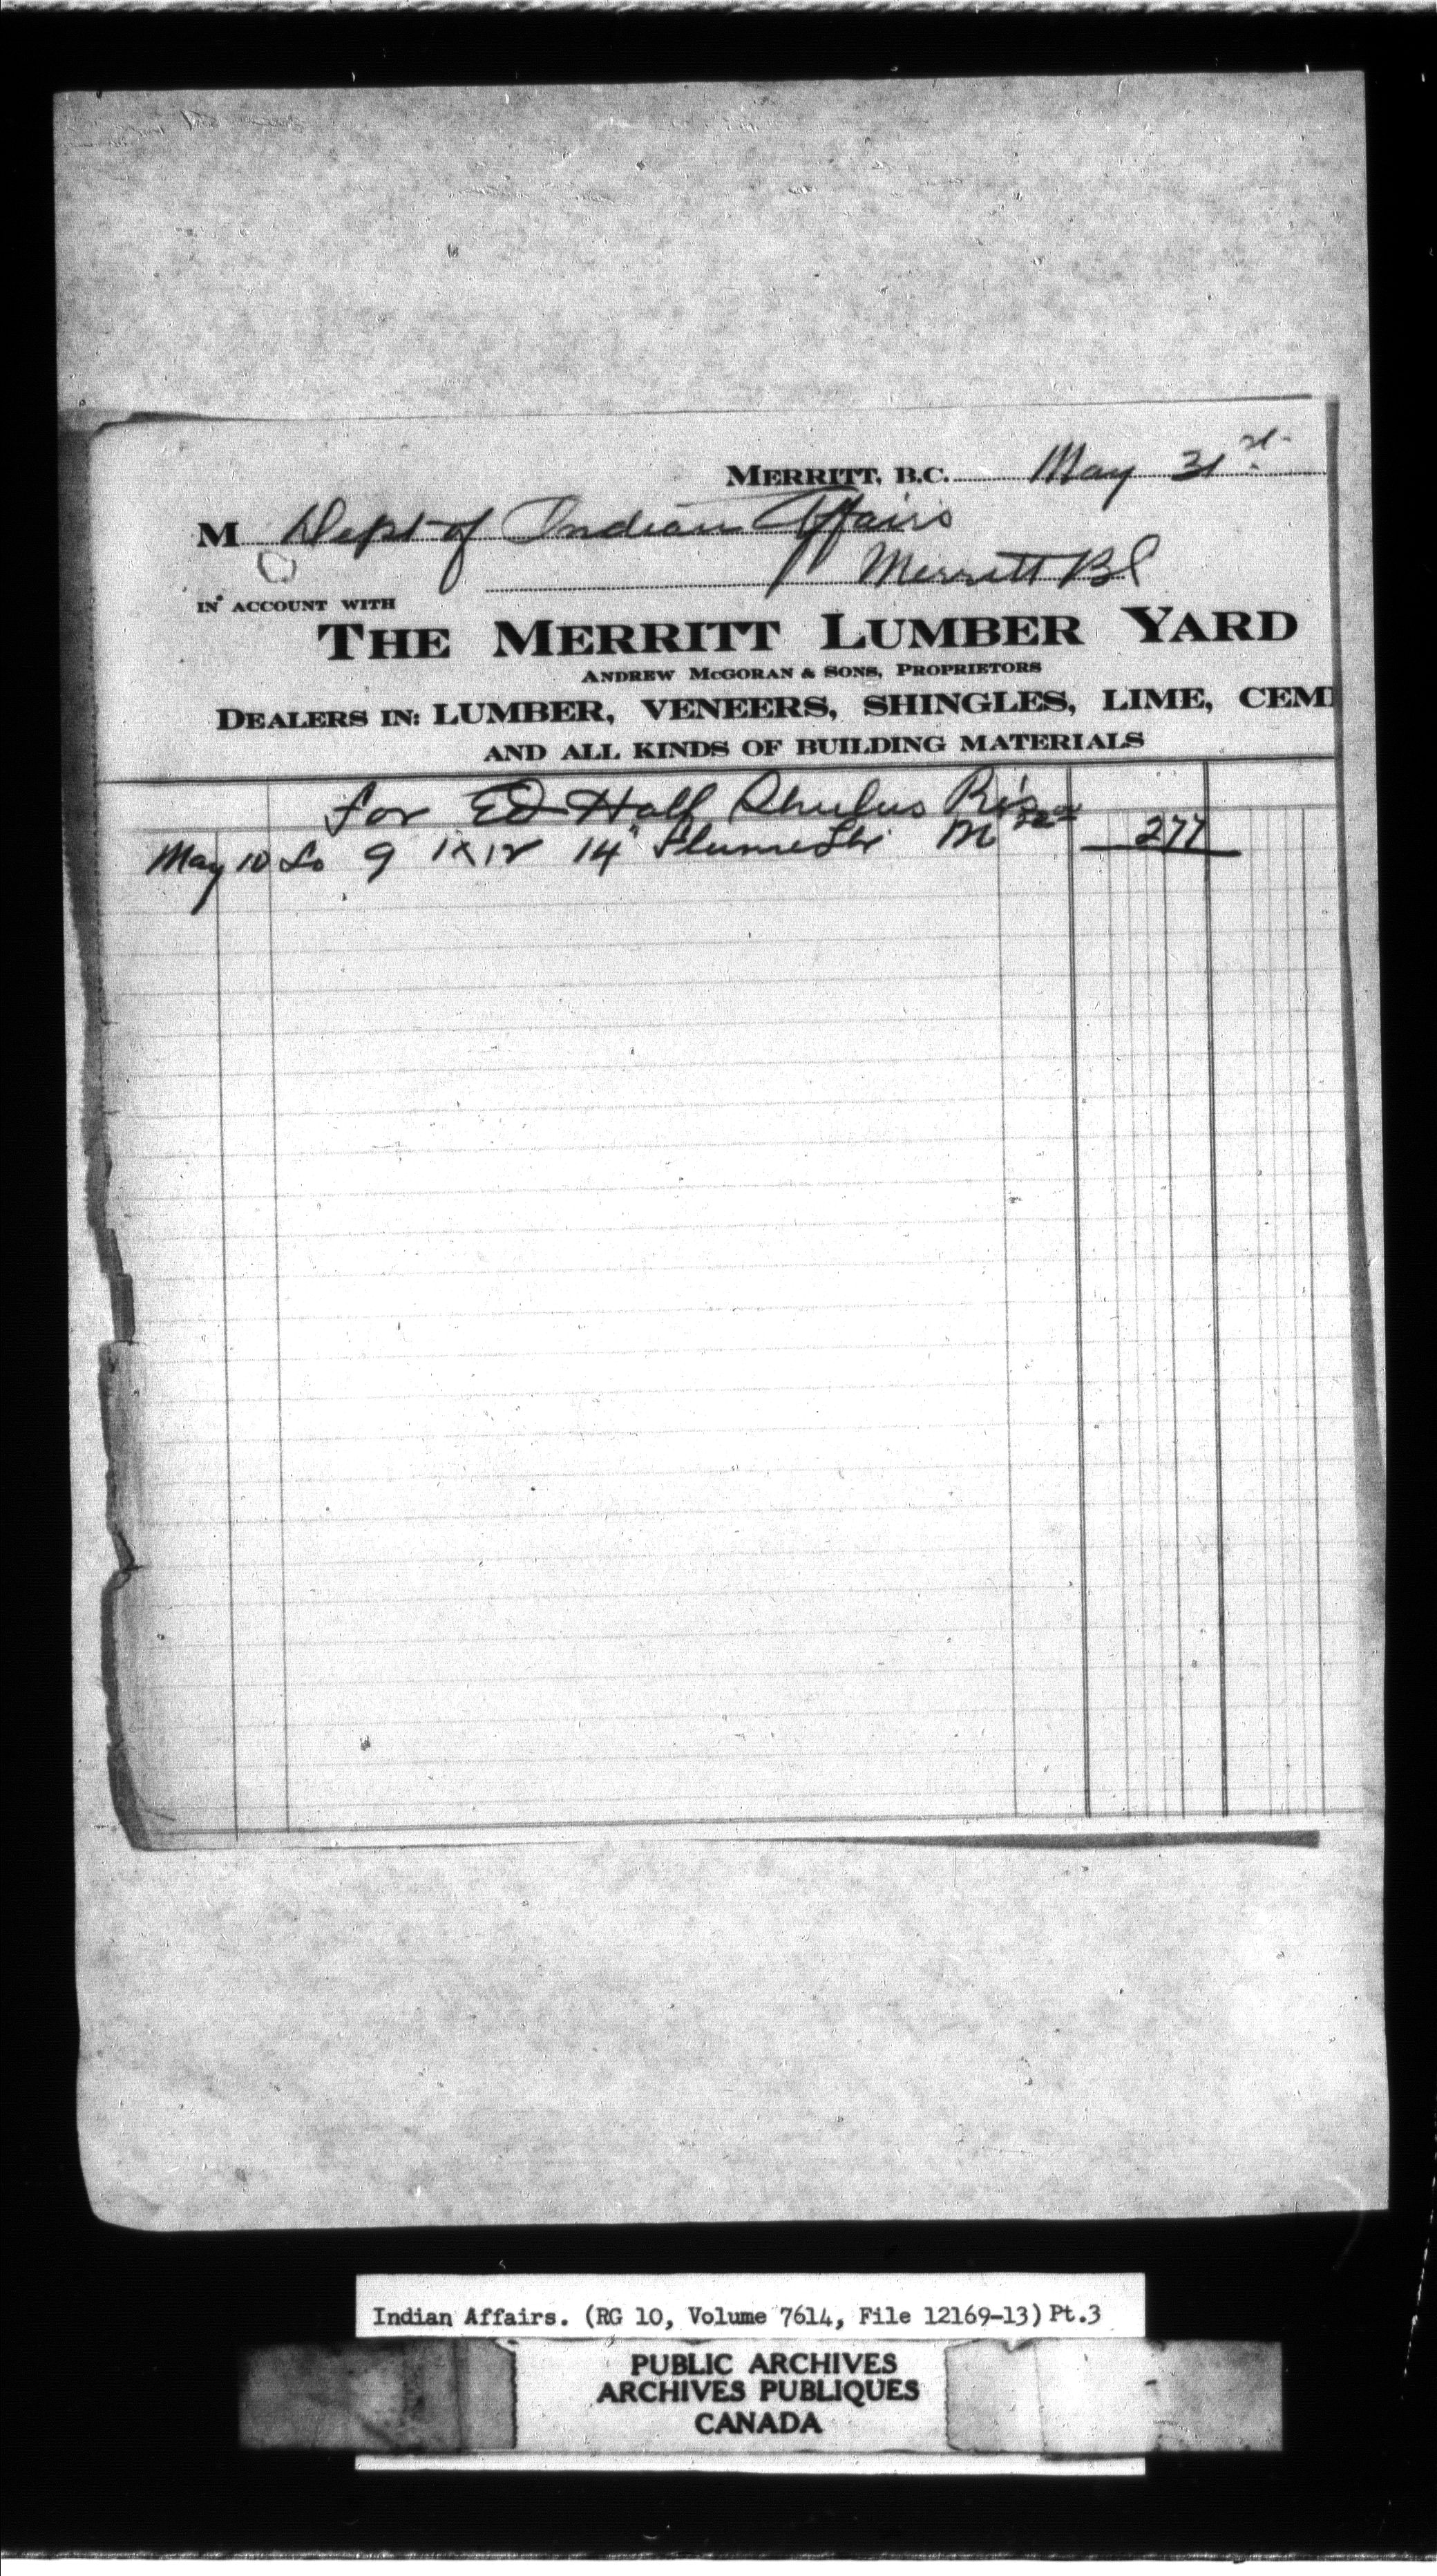 MERRITT, B.C. May 31st
M Dept of Indian Affairs
Merritt BC
IN ACCOUNT WITH
THE MERRITT LUMBER YARD
ANDREW MCGORAN & SONS, PROPRIETORS
DEALERS IN: LUMBER, VENEERS, SHINGLES, LIME, CEM
AND ALL KINDS OF BUILDING MATERIALS
for Ed Hall Shulus
May 10 To 9 1x12 14" M 277
Indian Affairs. (RG 10, Volume 7614, File 12169-13) Pt.3
PUBLIC ARCHIVES
ARCHIVES PUBLIQUES
CANADA